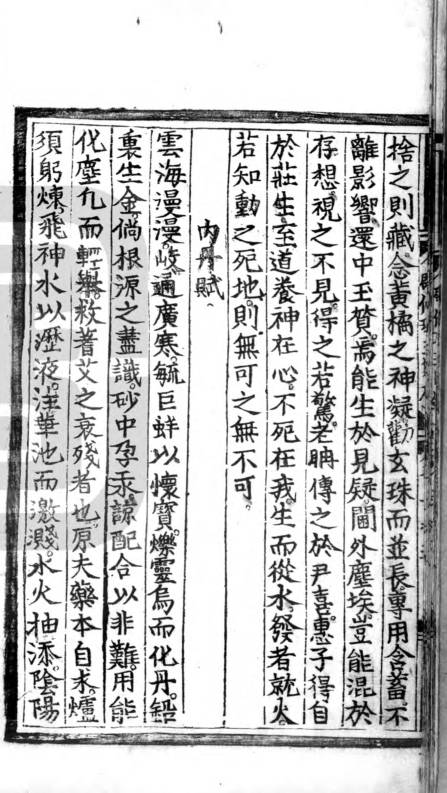 捨之則藏念黃橘之神凝勸玄珠而並長專用含蓄不
離影響還中王贊焉能生於見疑闤外塵埃豈能混於
存想視之不見得之若驚老聃傳之於尹喜惠子得自
於莊生至道養神在心不死在我生而從水發者就火
若知動之死地則無可之無不可
內丹賦
雲海漫漫岐遍廣寒毓巨蚌以懷寶爍靈烏而化丹鉛
裏生金倘根源之盡識砂中孕汞諒配合以非難用能
化塵凡而輕舉救蓍艾之衰殘者也原夫藥本自求爐
須躬煉飛神水以瀝液注華池而激濺水火抽添陰陽